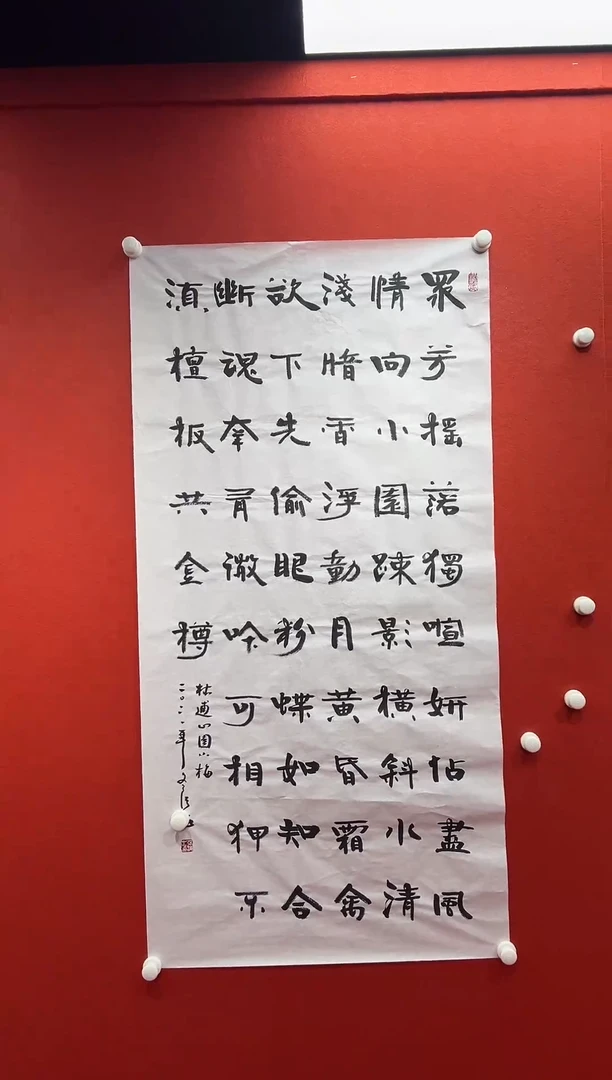 眾芳搖落獨喧妍佔盡風
情向小園踈影橫斜水清
淺暗香浮動月黃昏霜禽
欲下先偷眼粉蝶如知合
斷魂幸有微吟可相狎不
須檀板共金樽
林逋山園小梅
二〇二一年